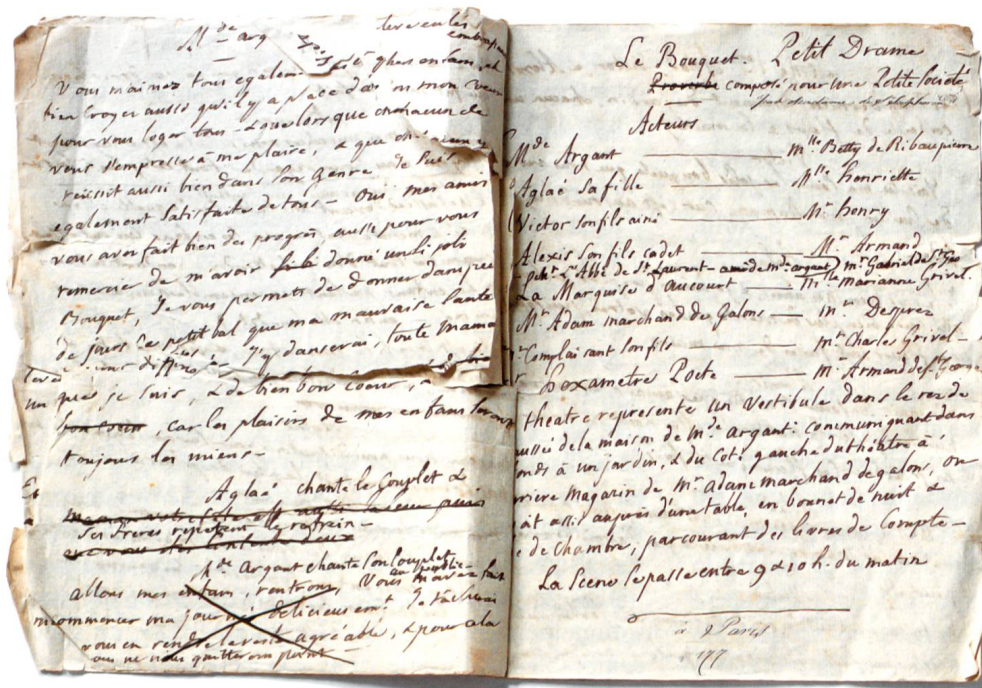 M.de arg
Vous m'aimez tous egalement
bien croyez aussi qu'il y a place dans mon coeur
pour vous loger tous - & que lorsque chacun de
vous s'empresse à me plaire, & que
reussit aussi bien dans son genre, Je suis
egalement satisfaite de tous - Oui mes amis
vous avez fait bien des progrès, aussi pour vous
remercier de m'avoir donné un si joli
Bouquet, Je vous permets de donner dans peu
de jours ce petit bal que ma mauvaise santé
J'y danserai, toute maman
que je suis, & de bien bon coeur,
bon coeur, car les plaisirs de mes enfans seront
toujours les miens -
Aglaé chante le Couplet &
Ses freres repetent le refrain -
M.de Argant chante son Couplet
allons mes enfans, rentrons, Vous m'avez fait
commencer ma journée delicieusement Je tâcherai
vous en rendre le reste agréable, & pour cela
nous ne nous quitterons point -
Le Bouquet. Petit Drame
Proverbe composé pour une Petite Societé
Acteurs
M.de Argant — M.lle Betty de Ribaupierre
Aglaé sa fille — M.lle henriette
Victor son fils ainé — M.r henry
Alexis son fils cadet — M.r Armand
L'Abbé de St. Laurent - ami de Md. argant M.r Gabriel de St. Geo
La Marquise d'aucourt — M.lle marianne Grivel.
M.r Adam marchand de Galons — M.r Desprez
Complaisant son fils — M.r Charles Grivel -
hexametre Poete — M.r Armand de St. George
theatre represente un Vestibule dans le rez de
aussée de la maison de M.de Argant: communiquant dans
fonds à un jardin, & du coté gauche du théatre à
rriere Magazin de M.r adam marchand de galons, on
oit assis auprès d'une table, en bonnet de nuit &
e de Chambre, parcourant des livres de Compte -
La Scene se passe entre 9 & 10 h. du matin
à Paris
177